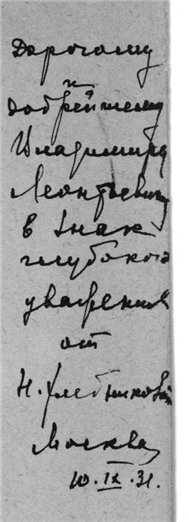 Дорогому
и
добрейшему
Владимиру
Леонтьевичу
в знак
глубокого
уважения
от
Н. Хлебникова
Москва
10.IX.31.